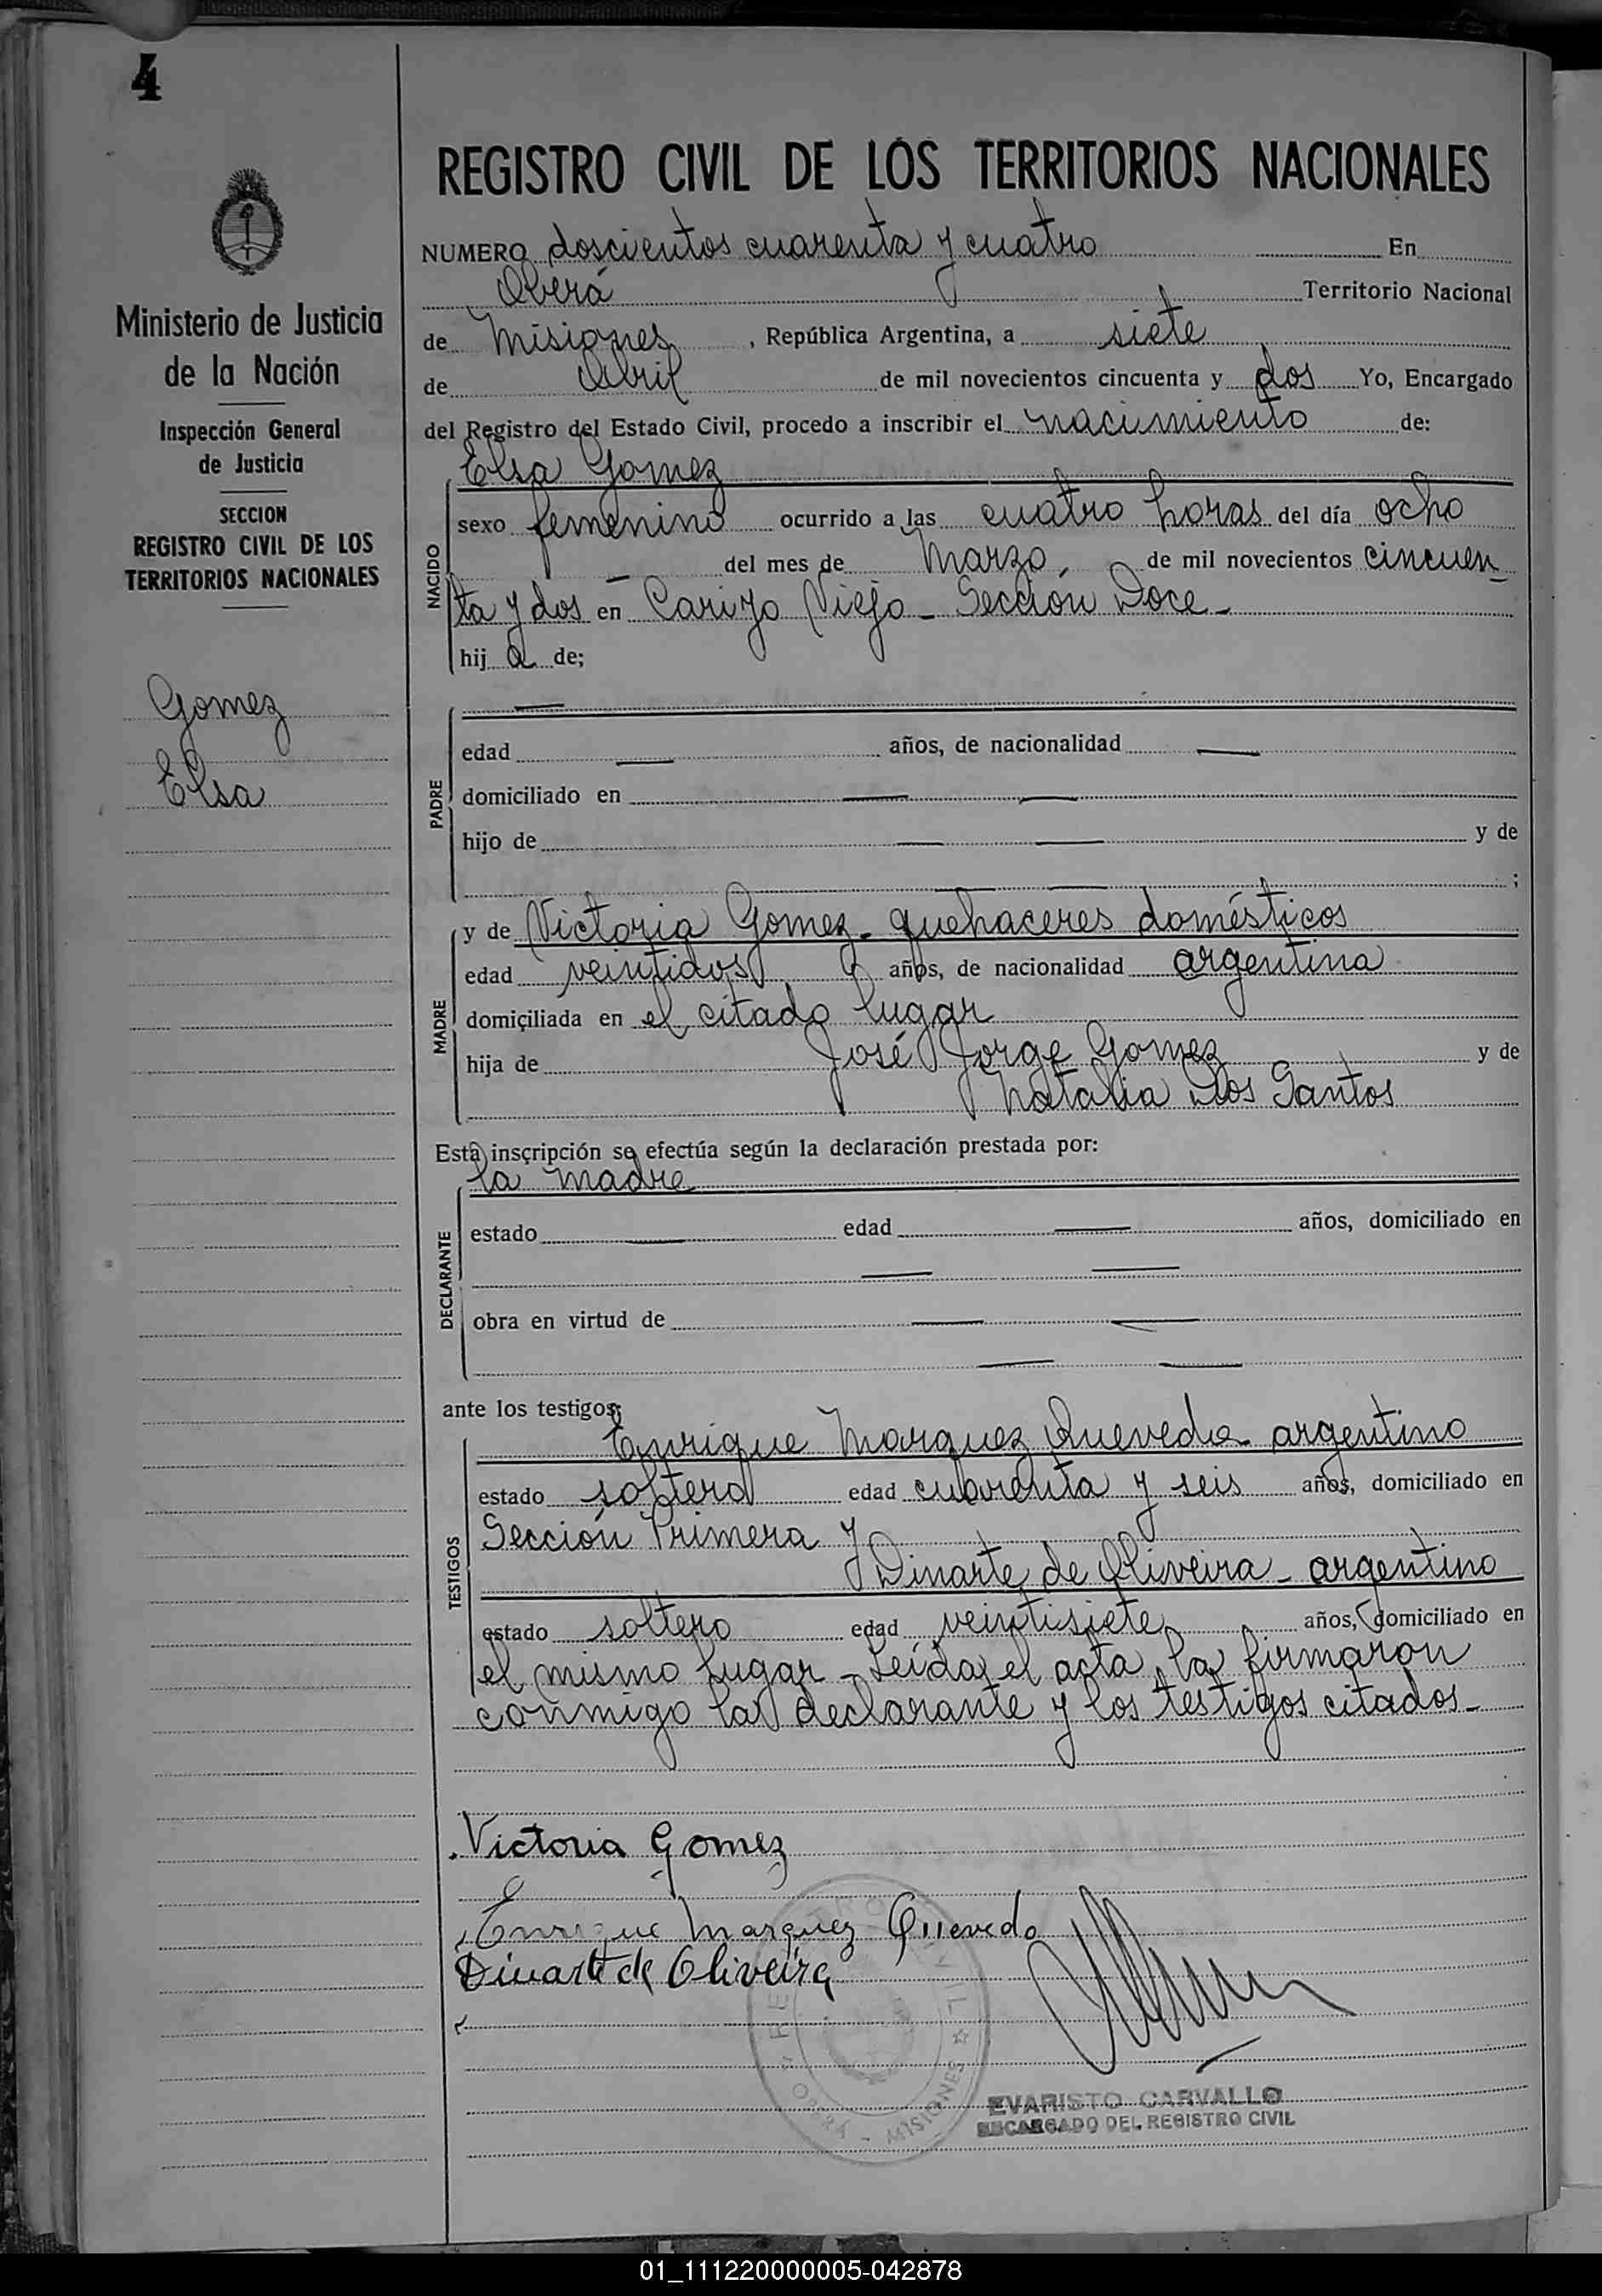 4
REGISTRO CIVIL DE LOS TERRITORIOS NACIONALES
Ministerio de Justicia
de la Nación
Inspección General
de Justicia
SECCION
REGISTRO CIVIL DE LOS
TERRITORIOS NACIONALES
Gomez
Elsa
NUMERO doscientos cuarenta y cuatro En
Oberá Territorio Nacional
de Misiones, República Argentina, a siete
de Abril de mil novecientos cincuenta y dos Yo, Encargado
del Registro del Estado Civil, procedo a inscribir el nacimiento de:
Elsa Gomez
NACIDO
sexo femenino ocurrido a las cuatro horas del día ocho
— del mes de Marzo, de mil novecientos cincuen
ta y dos en Cariyo Viejo - Sección Doce -
hij a de;
—
PADRE
edad — años, de nacionalidad —
domiciliado en — —
hijo de — — y de
— — ;
MADRE
y de Victoria Gomez - quehaceres domésticos
edad veintidos años, de nacionalidad argentina
domiciliada en el citado lugar
hija de José Jorge Gomez y de
Natalia Dos Santos
Esta inscripción se efectúa según la declaración prestada por:
la madre
DECLARANTE
estado — edad — años, domiciliado en
— —
obra en virtud de — —
— —
ante los testigos:
Enrique Marquez Quevedo - argentino
TESTIGOS
estado soltero edad cuarenta y seis años, domiciliado en
Sección Primera y
Dinarte de Oliveira - argentino
estado soltero edad veintisiete años, domiciliado en
el mismo lugar - Leida el acta, la firmaron
conmigo la declarante y los testigos citados -
Victoria Gomez
Enrique Marquez Quevedo
Dinarte de Oliveira
REGISTRO CIVIL
OBERA - MISIONES
EVARISTO CARVALLO
ENCARGADO DEL REGISTRO CIVIL
01_111220000005-042878